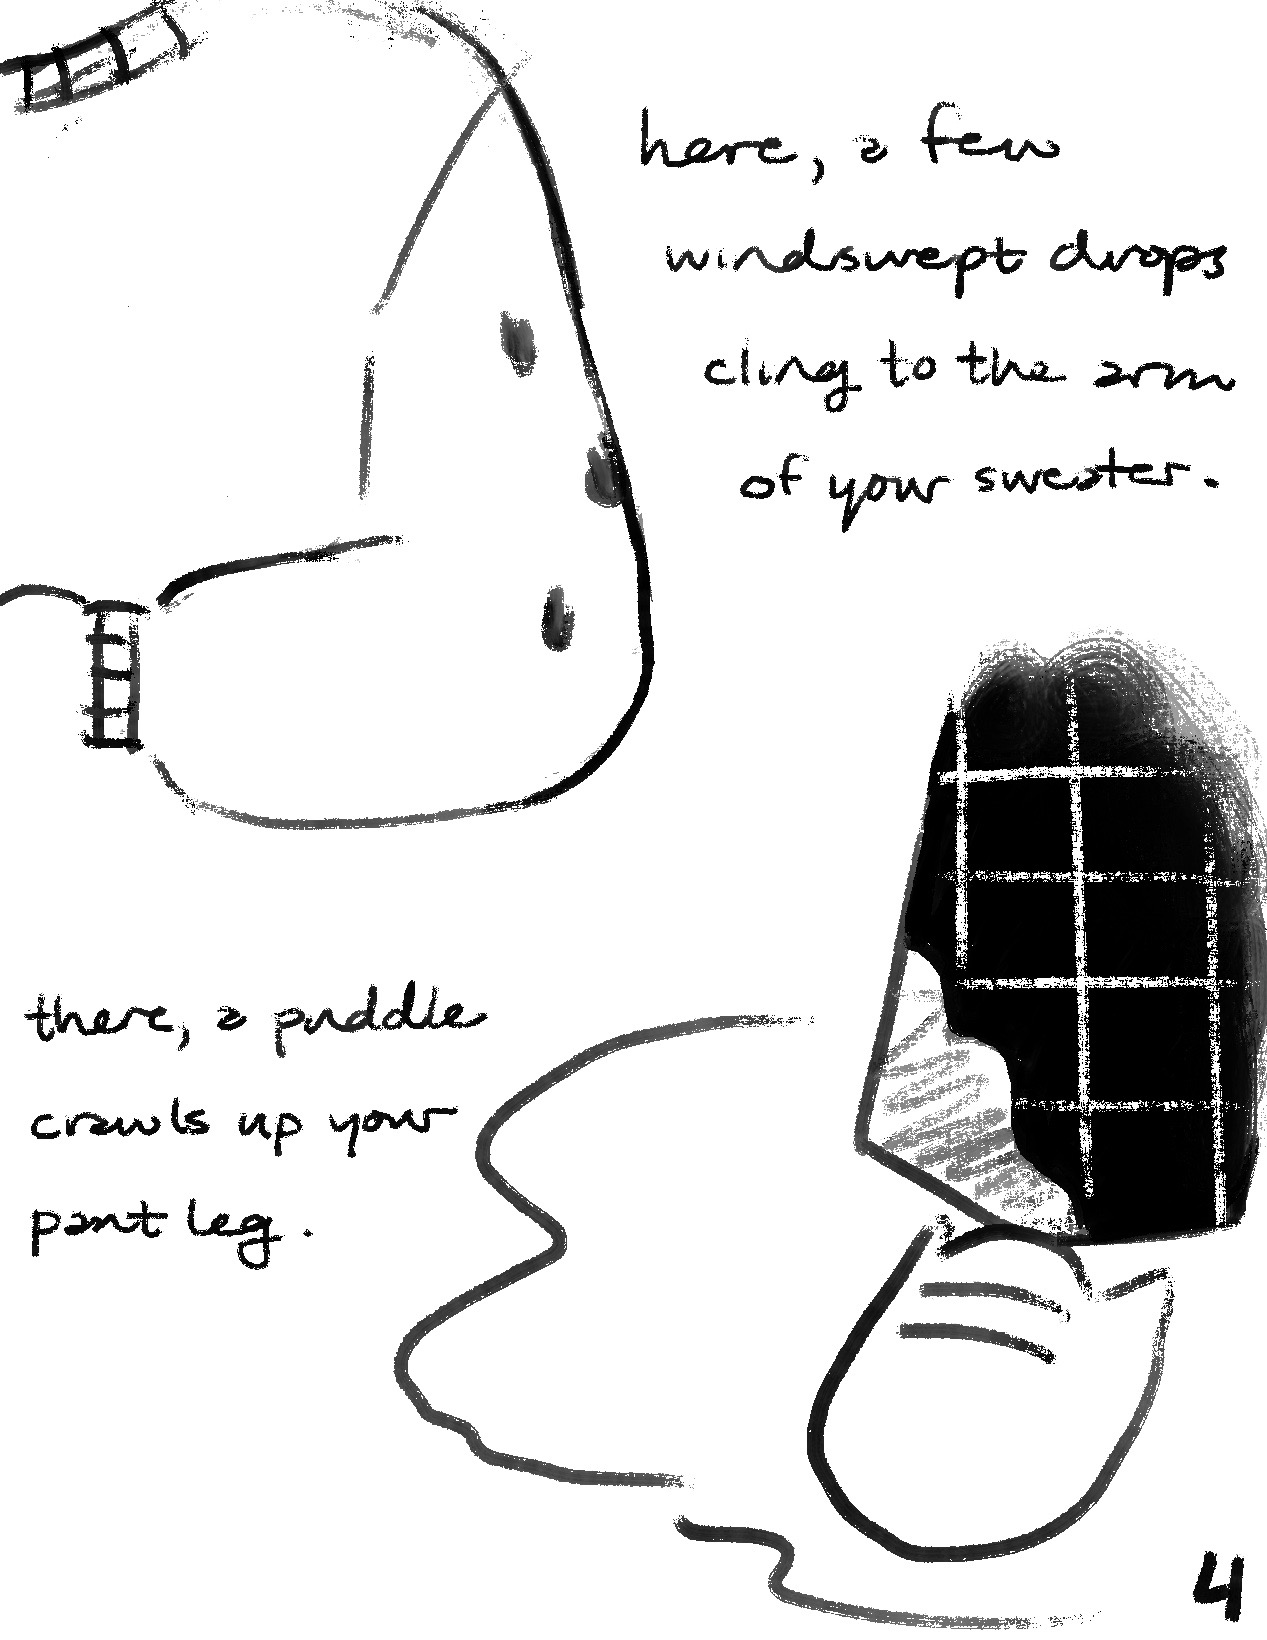 here, a few
windswept drops
cling to the arm
of your sweater.
there, a puddle
crawls up your
pant leg.
4